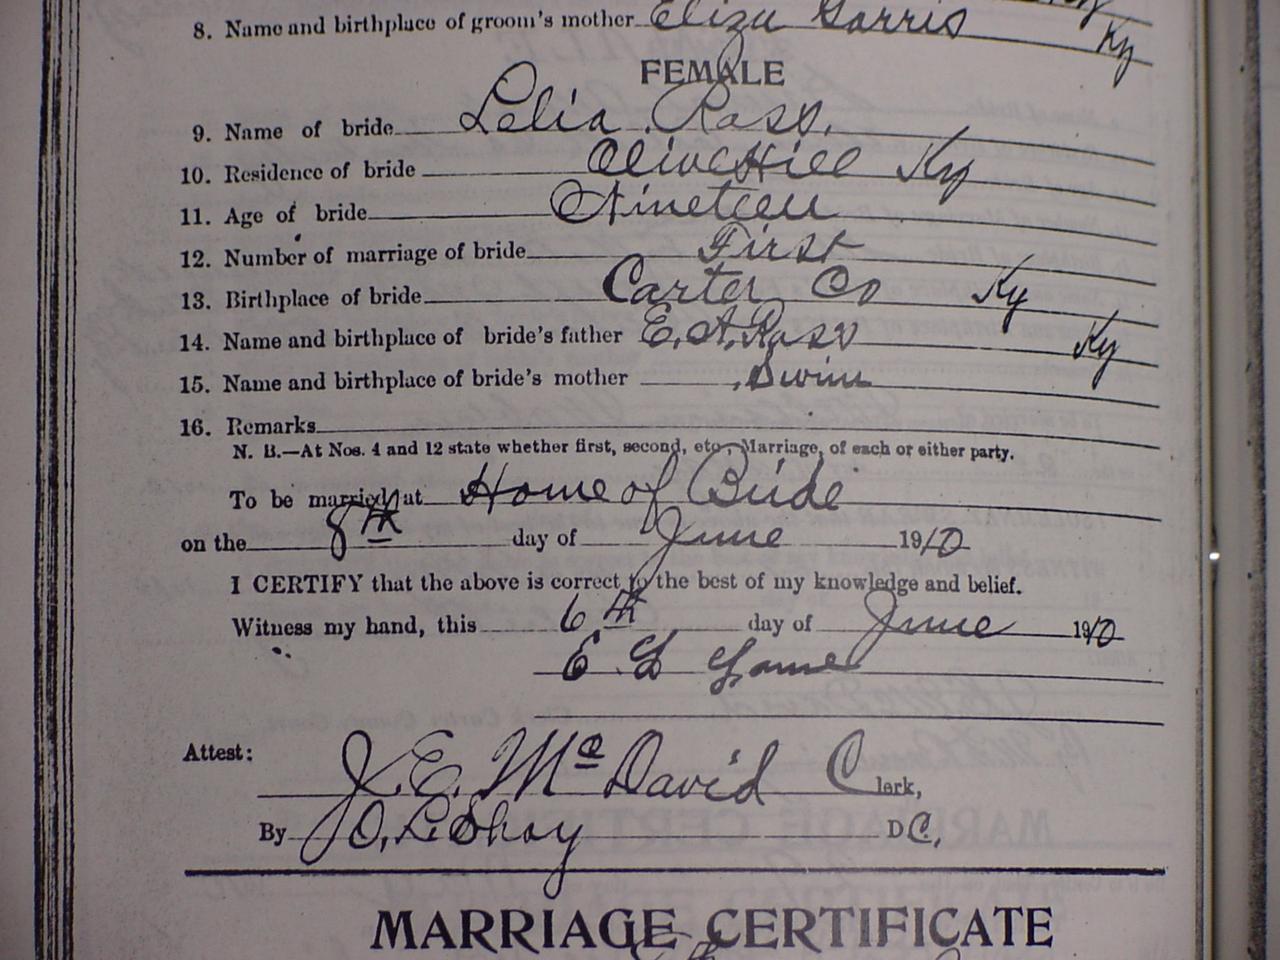 8. Name and birthplace of groom's mother Eliza Garris Ky
FEMALE
9. Name of bride Lelia Rass.
10. Residence of bride Olive Hill Ky
11. Age of bride Nineteen
12. Number of marriage of bride First
13. Birthplace of bride Carter Co Ky
14. Name and birthplace of bride's father E. A. Rass Ky
15. Name and birthplace of bride's mother Swim
16. Remarks
N. B.—At Nos. 4 and 12 state whether first, second, etc., Marriage, of each or either party.
To be married at Home of Bride
on the 8th day of June 1910
I CERTIFY that the above is correct to the best of my knowledge and belief.
Witness my hand, this 6th day of June 1910
E L
Attest:
J. E. McDavid Clerk,
By D.C.,
MARRIAGE CERTIFICATE